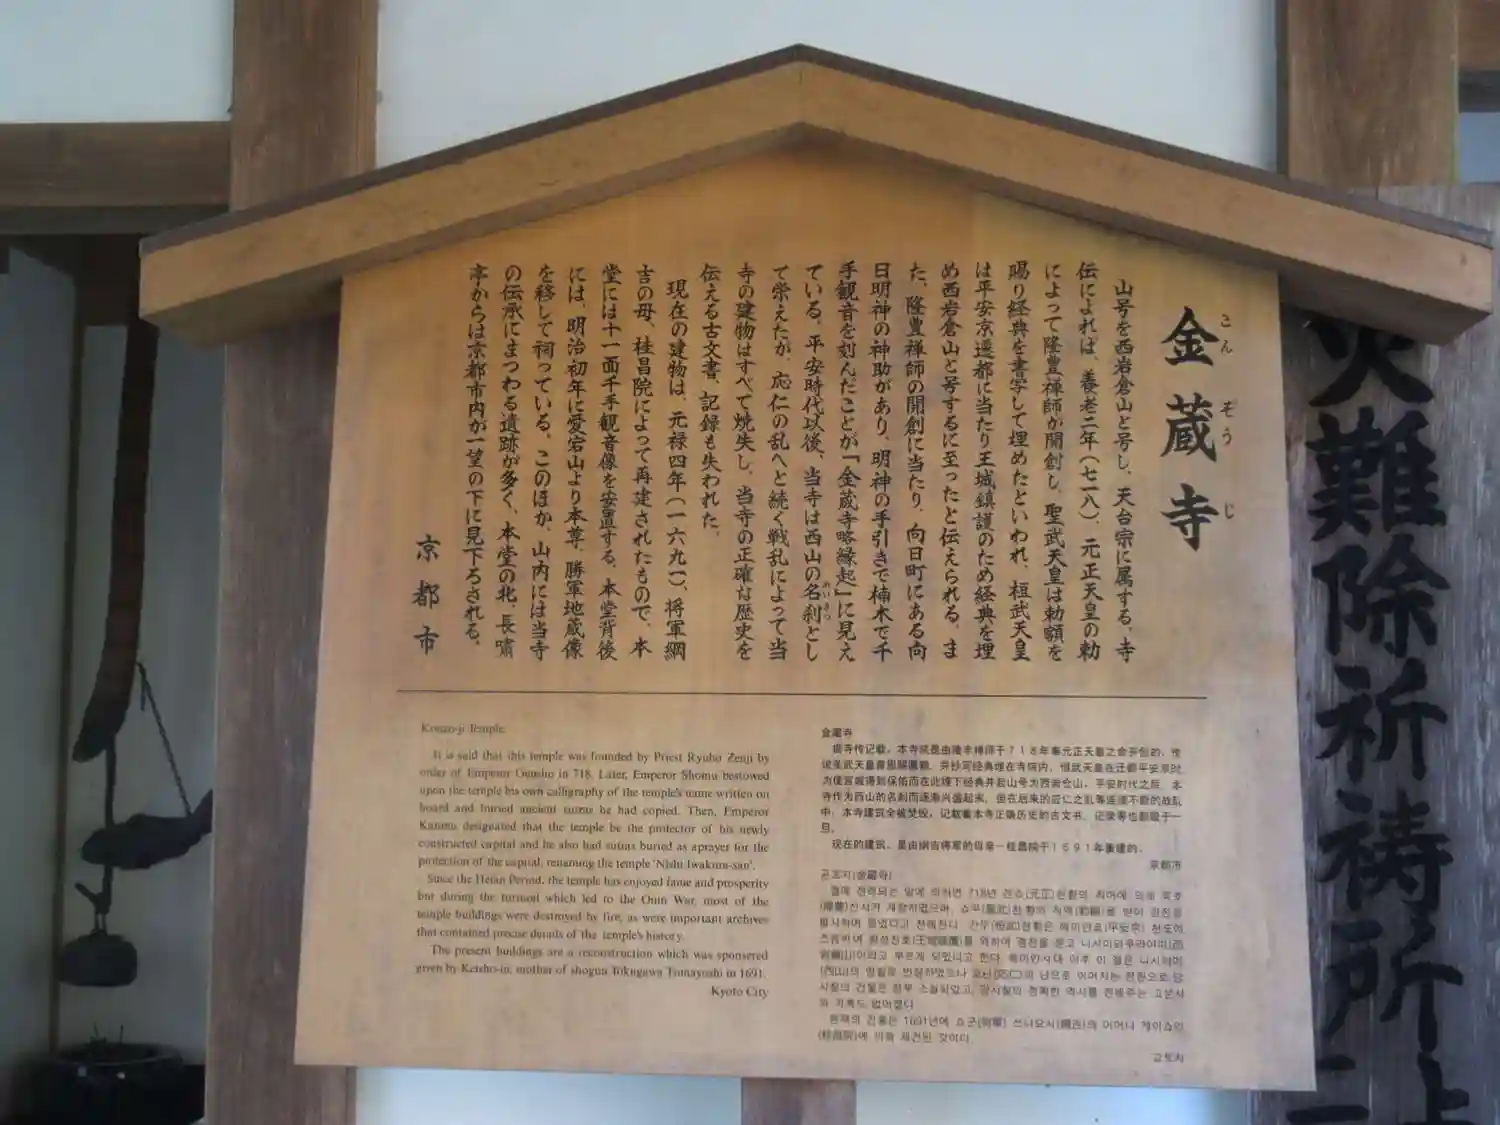 金蔵寺
こんぞうじ
山号を西岩倉山と号し、天台宗に属する。寺
伝によれば、養老二年（七一八）、元正天皇の勅
によって隆豊禅師が開創し、聖武天皇は勅額を
賜り経典を書写して埋めたといわれ、桓武天皇
は平安京遷都に当たり王城鎮護のため経典を埋
め西岩倉山と号するに至ったと伝えられる。ま
た、隆豊禅師の開創に当たり、向日町にある向
日明神の神助があり、明神の手引きで楠木で千
手観音を刻んだことが「金蔵寺略縁起」に見え
ている。平安時代以後、当寺は西山の名刹とし
て栄えたが、応仁の乱へと続く戦乱によって当
寺の建物はすべて焼失し、当寺の正確な歴史を
伝える古文書、記録も失われた。
現在の建物は、元禄四年（一六九一）、将軍綱
吉の母、桂昌院によって再建されたもので、本
堂には十一面千手観音像を安置する。本堂背後
には、明治初年に愛宕山より本尊、勝軍地蔵像
を移して祠っている。このほか、山内には当寺
の伝承にまつわる遺跡が多く、本堂の北、長嘯
亭からは京都市内が一望の下に見下ろされる。
京都市
Konzo-ji Temple
It is said that this temple was founded by Priest Ryuho Zenji by
order of Emperor Gensho in 718. Later, Emperor Shomu bestowed
upon the temple his own calligraphy of the temple's name written on
board and buried ancient sutras he had copied. Then, Emperor
Kanmu designated that the temple be the protector of his newly
constructed capital and he also had sutras buried as aprayer for the
protection of the capital, renaming the temple 'Nishi Iwakura-san'.
Since the Heian Period, the temple has enjoyed fame and prosperity
but during the turmoil which led to the Onin War, most of the
temple buildings were destroyed by fire, as were important archives
that contained precise details of the temple's history.
The present buildings are a reconstruction which was sponsered
given by Keisho-in, mother of shogun Tokugawa Tsunayoshi in 1691.
Kyoto City
金蔵寺
据寺传记载，本寺院是由隆丰禅师于７１８年奉元正天皇之命开创的，传
寺作为西山的名刹而逐渐兴盛起来，但在后来的应仁之乱等连续不断的战乱
中，本寺建筑全被焚毁，记载着本寺正确历史的古文书、记录等也都毁于一
旦。
现在的建筑，是由纲吉将军的母亲－桂昌院于１６９１年重建的。
京都市
곤조지(金蔵寺)
교토시
火難除祈祷所